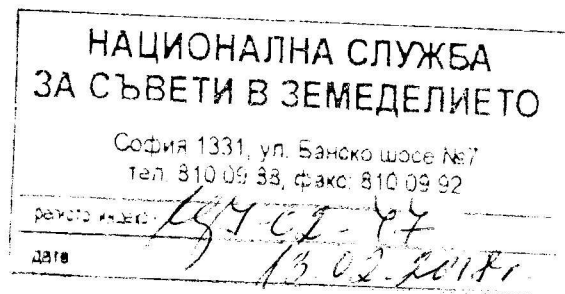 НАЦИОНАЛНА СЛУЖБА
ЗА СЪВЕТИ В ЗЕМЕДЕЛИЕТО
София 1331, ул. Банско шосе №7
тел. 810 09 88, факс: 810 09 92
дата 13.02.2018г.